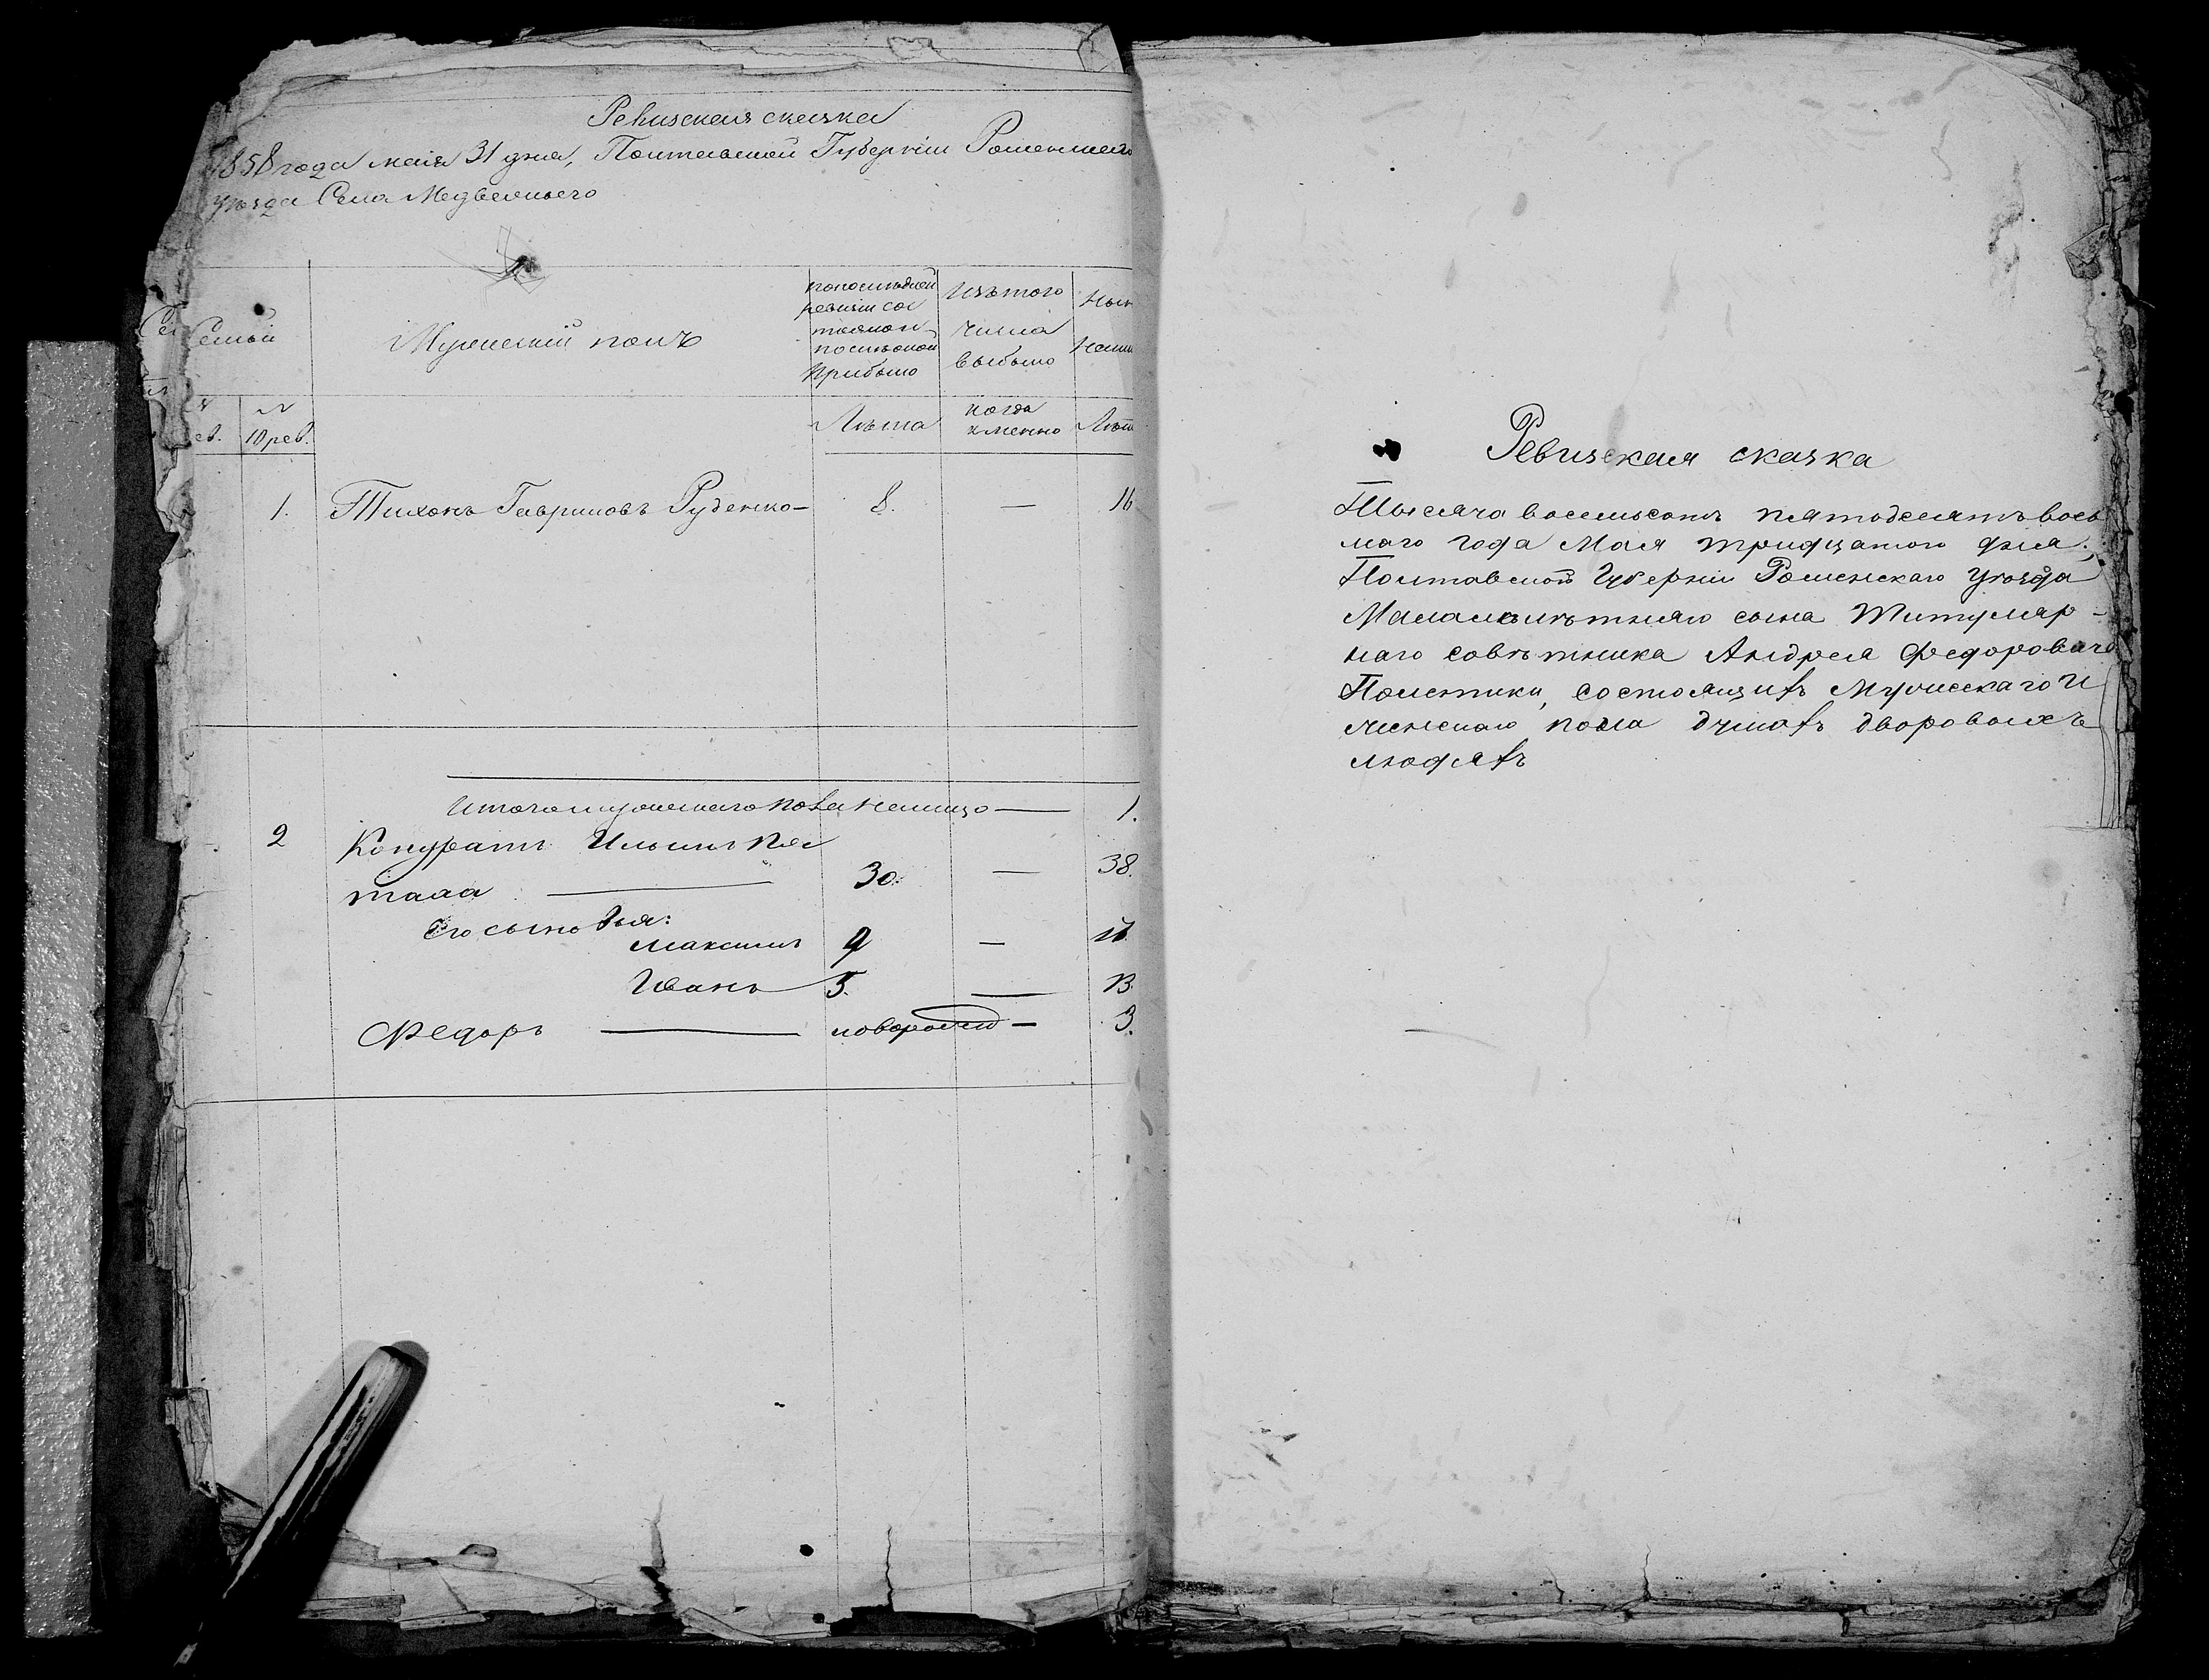 Ревизская сказка
1858 года маія 31 дня, Полтавской Губерніи Роменскаго
уѣзда Села Медвежьего
Семьи
Мужескій полъ
по последней
ревизіи сос
тояло и
после оной
прибыло
Изъ того
числа
выбыло
Нын
Нали
10 рев.
Лѣта
когда
именно
Лѣт
1. Тихонъ Гавриловъ Руденко — 8. — 16
Итого мужескаго пола налицо — 1.
2 Кондратъ Ильинъ
— 30. — 38.
Его сыновья:
Максимъ 9 —
Иванъ 5. — 13.
Федоръ — новорожд — 3.
Ревизская сказка
Тысяча восемьсотъ пятодесятъ вось
маго года Мая тридцатого дня,
Полтавской Губерніи Роменскаго уѣзда
Малолѣтняго сына Титуляр-
наго совѣтника Андрея Федоровича
Полетики, состоящихъ Мужескаго и
женскаго пола душахъ дворовыхъ
людяхъ